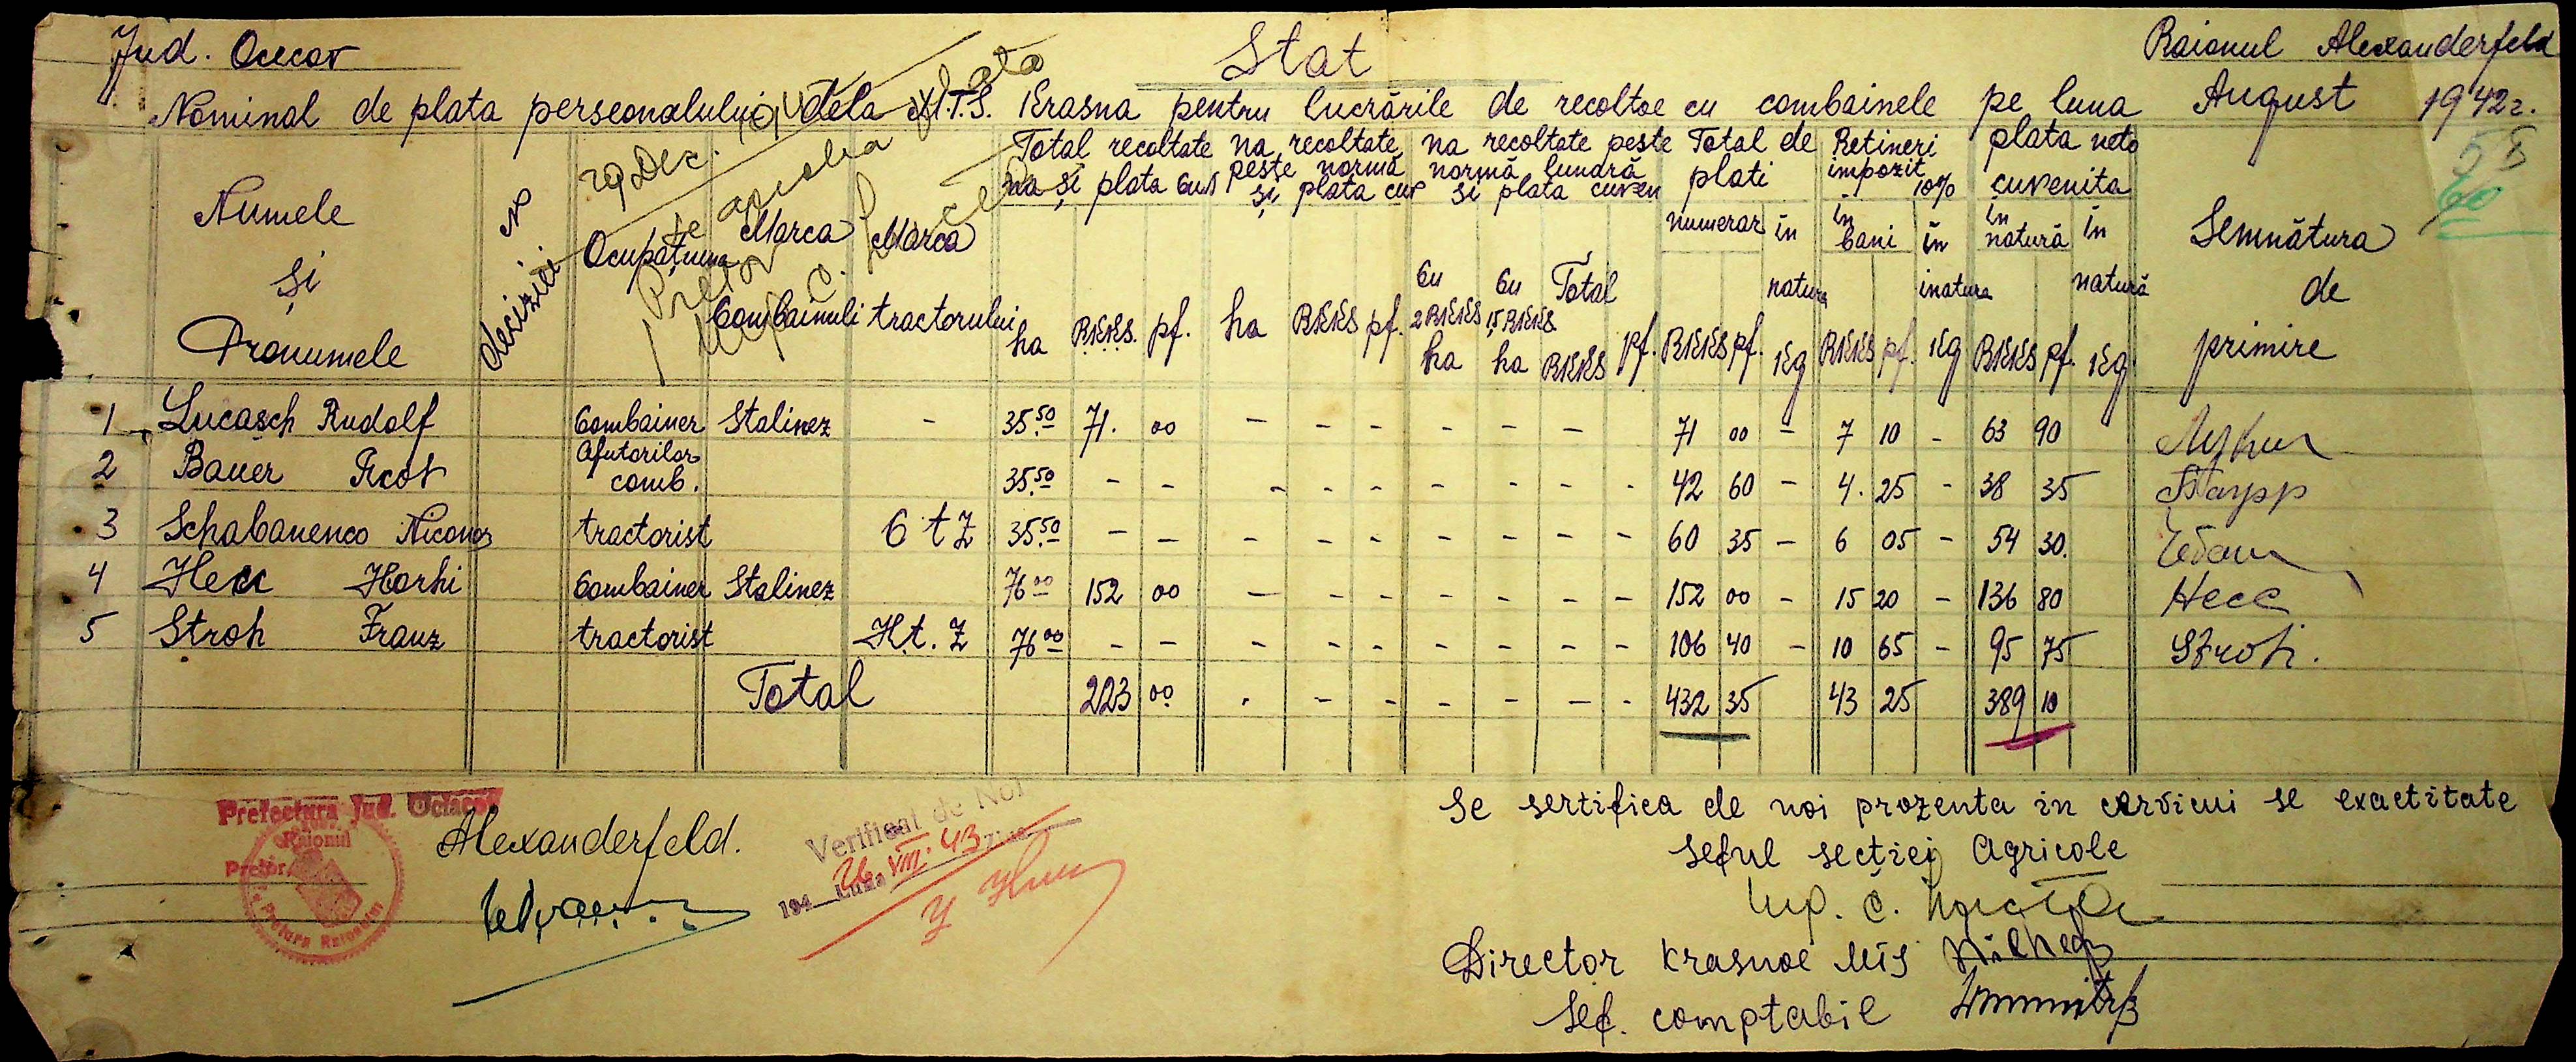 Jud. Ocecov
Stat
Raionul Alexanderfeld
Nominal de plata perseonalului dela M.T.S. Krasna pentru lucrările de recoltoe cu combainele pe luna August 1942
Numele și Pronumele
No deciziei
Ocupațiunea
Marca Combainuli
Marca tractorului
Total recoltate na și plata cuv
na recoltate peste normă și plata cuv
na recoltate peste normă lunară si plata cuven
Total de plati
Retineri impozit 10%
plata neto cuvenita
Semnătura de primire
numerar in natura in bani in inatura in natură in natură
Cu 2 RKKS ha Cu 15 RKKS ha Total RKKS pf.
ha RKKS. pf. ha RKKS pf. RKKS pf. Kg RKKS pf. Kg RKKS pf. Kg
29 Dec.
58
60
1 Lucasch Rudolf Combainer Stalinez - 35.50 71. 00 - - - - - - 71 00 - 7 10 - 63 90
2 Bauer Acob Ajutorilor comb. 35.50 - - - - - - - - - 42 60 - 4. 25 - 38 35 Баурр
3 Schabanenco Niconor tractorist C t Z 35.50 - - - - - - - - - 60 35 - 6 05 - 54 30.
4 Hecc Horhi Combainer Stalinez 76 00 152 00 - - - - - - - 152 00 - 15 20 - 136 80 Несс
5 Stroh Franz tractorist H.t.Z 76 00 - - - - - - - - - 106 40 - 10 65 - 95 75 Stroh.
Total 223 00 . - - - - - - 432 35 43 25 389 10
Prefectura Jud. Oceacov
Raionul
Pretor
Pretura Raionului
Alexanderfeld.
Verificat de Noi
194 Luna Ziua
26 VIII 43
Se sertifica de noi prozenta in cervicui se exactitate
Seful secției Agricole
Director Krasnoe MTS
Sef. comptabil